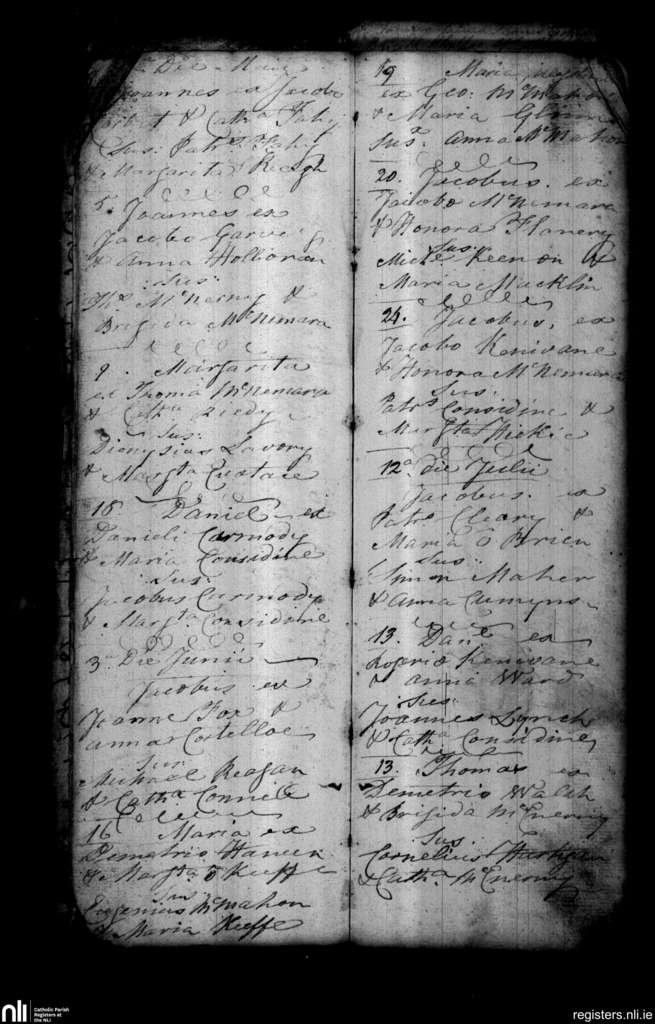 Die Maii
Joannes ex Jacobo
& Cathª Fahy
Sus: Patrs Fahy
& Margarita Reagh
5. Joannes ex
Jacobo Garvey
& Anna Holloran
Sus:
Ths McNerny &
Brigida McNemara
9. Margarita
ex Thoma McNemara
& Cathª Liedy
Sus:
Dionysius Lavory
& Margtª Eustace
18. Daniel ex
Danieli Carmody
& Maria Considine
Sus:
Jacobus Carmody
& Margtª Considine
3ª Die Junii
Jacobus ex
Joanne Fox &
Anna Costelloe
Sus:
Michael Reagan
& Cathª Connell
16 Maria ex
Demetrio
& Margtª O Keeffe
Sus:
Eugenius McMahon
& Maria Keeffe
19 Maria
ex Geo: McMahon
& Maria
Sus: Anna McMahon
20. Jacobus. ex
Jacobo McNemara
& Honora Flanery
Sus:
Michl Keenon &
Maria Macklin
24. Jacobus, ex
Jacobo Kenivane
& Honora McNemara
Sus:
Patrs Considine &
Margtª Hickie
12ª die Julii
Jacobus. ex
Patrs Cleary &
Maria O Brien
Sus:
Simon Maher
& Anna Cumyns
13. Danl ex
Rogerio Kenivane
& Anna Ward
Sus:
Joannes Lynch
& Cathª Considine
13. Thomas ex
Demetrio Walsh
& Brigida McEnerny
Sus:
Cornelius Hartigan
& Cathª McEnerny
nli
Catholic Parish
Registers at
the NLI
registers.nli.ie